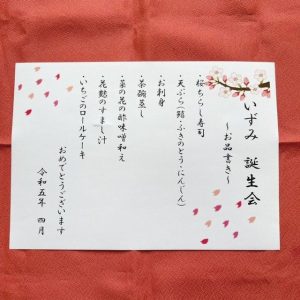 いずみ 誕生会
〜お品書き〜
・桜ちらし寿司
・天ぷら(鱚・ふきのとう・にんじん)
・お刺身
・茶碗蒸し
・菜の花の酢味噌和え
・花麩のすまし汁
・いちごのロールケーキ
おめでとうございます
令和五年 四月